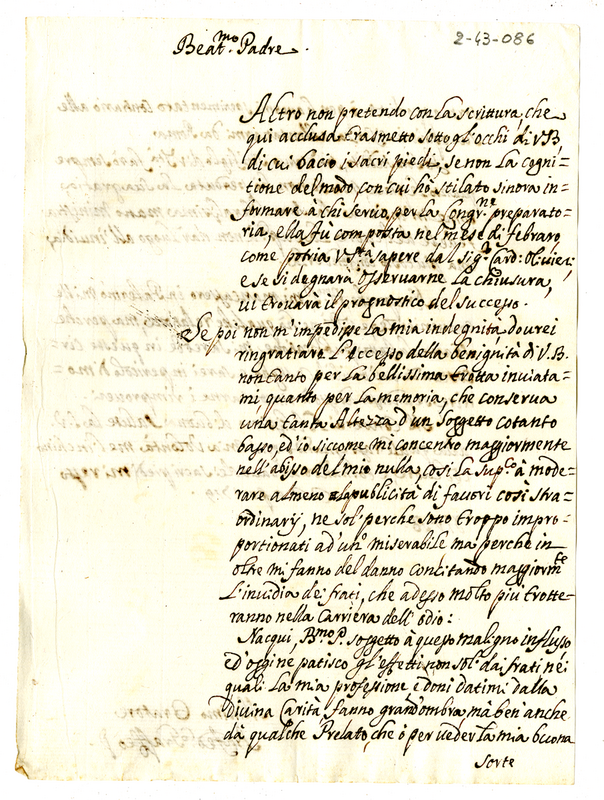 2-43-086
Beat.mo Padre.
Altro non pretendo con la scrittura, che
qui acclusa trasmetto sotto gl'occhi di V.B.
di cui bacio i sacri piedi, se non la cogni=
tione del modo con cui hò stilato sinora in=
formare à chi servio, per la Congr.ne preparato=
ria, ella fù composta nel mese di febraro
come potria V. S.tà sapere dal sig.r Card. Oliuieri
e se si degnarà osseruarne la chiusura,
ui trouarà il prognostico del successo.
Se poi non m'impedisse la mia indegnità, dourei
ringratiare l'eccesso della benignità di V.B.
non tanto per la bellissima trotta inuiata=
mi quanto per la memoria, che conserua
una tanta Altezza d'un soggetto cotanto
basso, ed io siccome mi concentro maggiormente
nell'abisso del mio nulla, così la sup.co à mode=
rare almeno la publicità di fauori così stra=
ordinarij, ne sol' perche sono troppo impro=
portionati ad un' miserabile ma perche in
oltre mi fanno del danno concitando maggiorm.te
l'inuidia de frati, che adesso molto più trotte=
ranno nella carriera dell'odio:
Nacqui, B.mo P. soggetto à questo maligno influsso
ed oggi ne patisco gl'effetti non sol' da frati nei
quali la mia professione e doni datimi dalla
Divina Carità, fanno grand'ombra, ma ben'anche
dà qualche Prelato, che ò per veder la mia buona
sorte